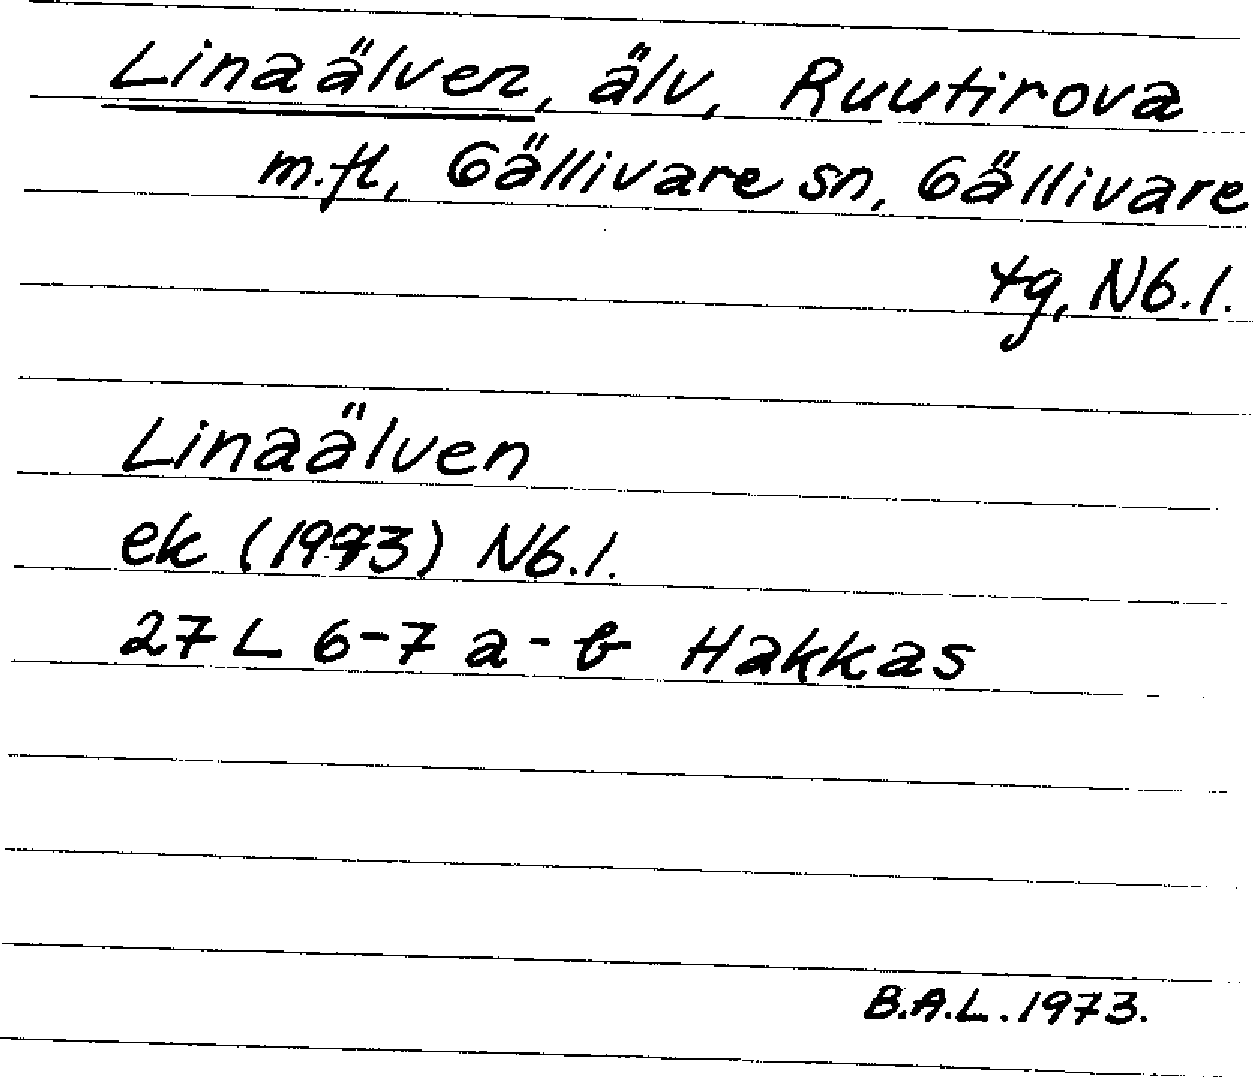 Linaälven, älv, Ruutirova
m.fl, Gällivare sn, Gällivare
tg, Nb.l.
Linaälven
ek (1973) Nb.l.
27 L 6-7 a-b Hakkas
B.A.L. 1973.